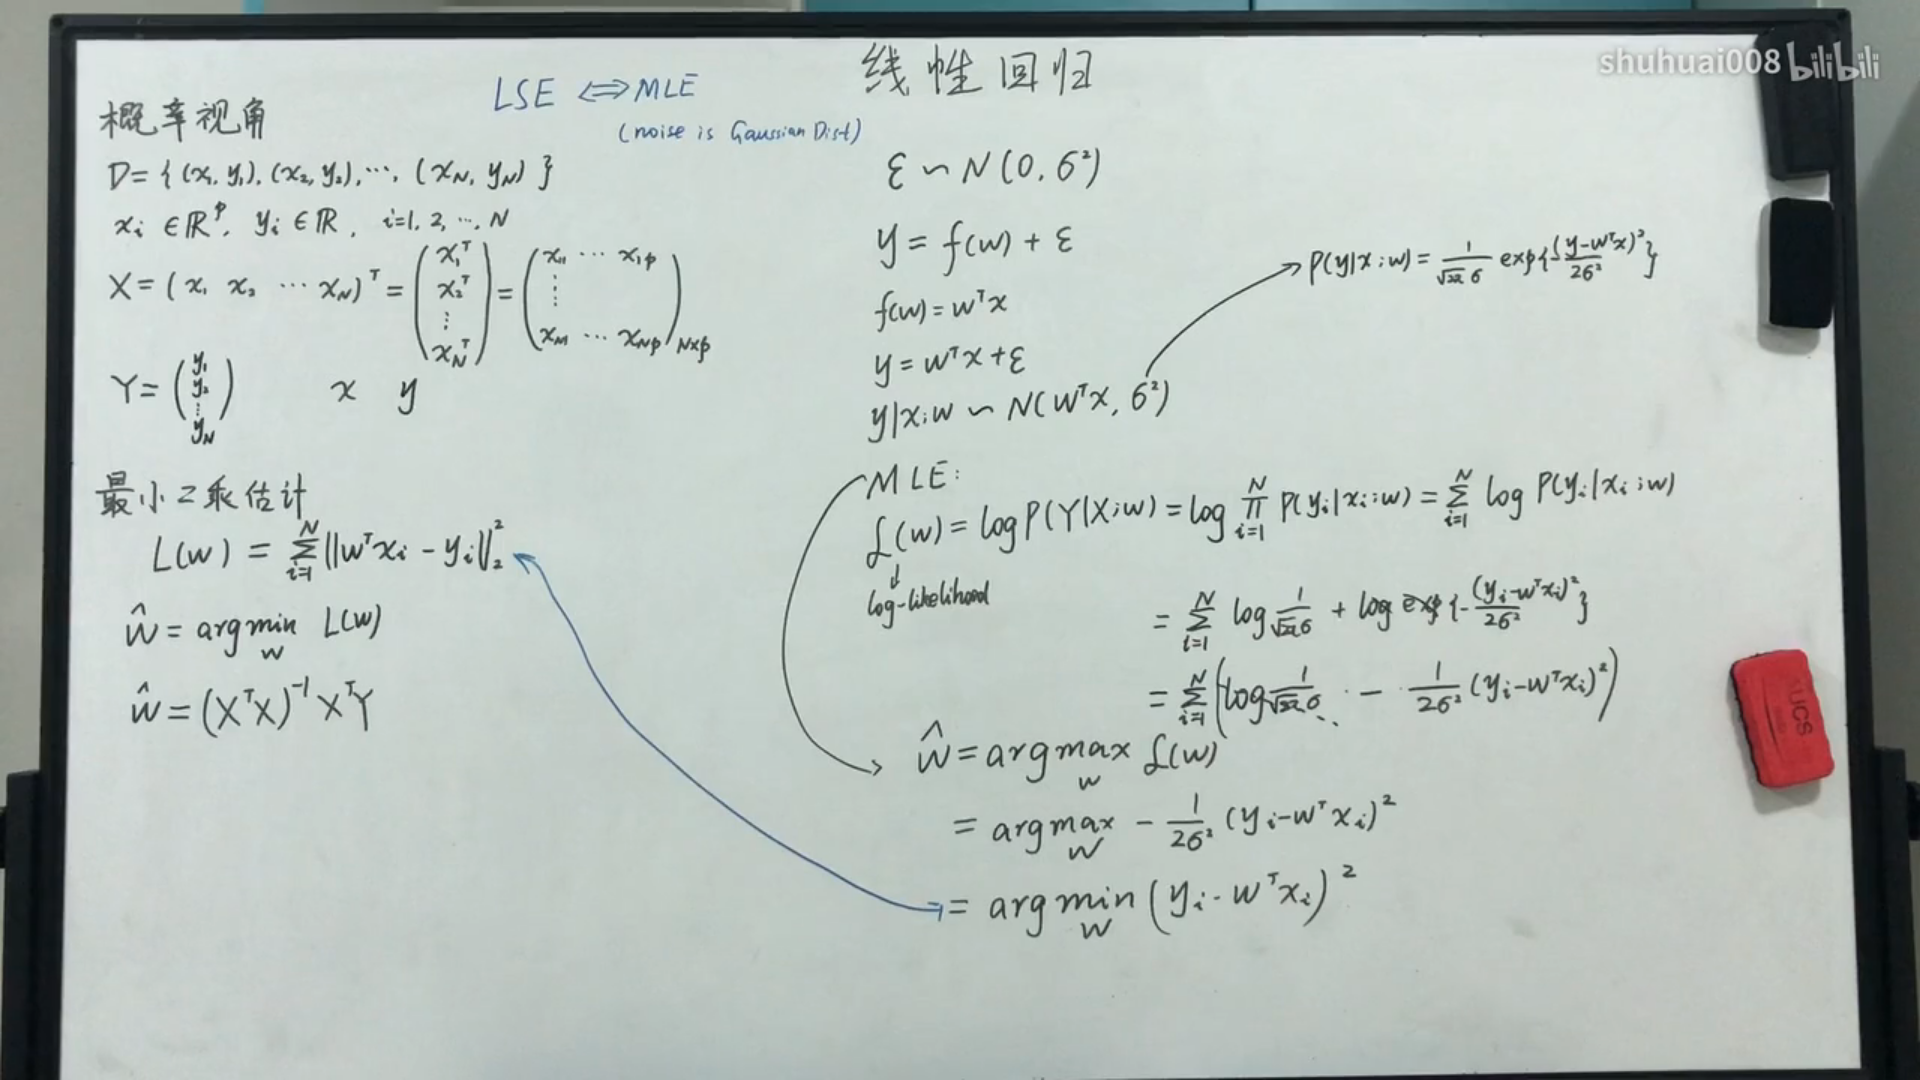 shuhuai008 bilibili
线性回归
概率视角
LSE ⇔ MLE
(noise is Gaussian Dist)
D = {(x₁, y₁), (x₂, y₂), ⋯, (x_N, y_N)}
xᵢ ∈ ℝᵖ, yᵢ ∈ ℝ, i=1, 2, ⋯, N
X = (x₁ x₂ ⋯ x_N)ᵀ = (x₁ᵀ x₂ᵀ ⋮ x_Nᵀ) = (x₁₁ ⋯ x₁p ⋮ x_N1 ⋯ x_Np)_N×p
Y = (y₁ y₂ ⋮ y_N)
x y
最小二乘估计
L(w) = Σ_{i=1}^N ||wᵀxᵢ - yᵢ||₂²
ŵ = argmin_w L(w)
ŵ = (XᵀX)⁻¹XᵀY
ε ~ N(0, σ²)
y = f(w) + ε
f(w) = wᵀx
y = wᵀx + ε
y|x;w ~ N(wᵀx, σ²)
P(y|x;w) = 1/(√2π σ) exp{-(y-wᵀx)²/2σ²}
MLE:
ℒ(w) = log P(Y|X;w) = log ∏_{i=1}^N P(yᵢ|xᵢ;w) = Σ_{i=1}^N log P(yᵢ|xᵢ;w)
↓
log-likelihood
= Σ_{i=1}^N log 1/(√2π σ) + log exp{-(yᵢ-wᵀxᵢ)²/2σ²}
= Σ_{i=1}^N (log 1/(√2π σ) - 1/2σ² (yᵢ-wᵀxᵢ)²)
ŵ = argmax_w ℒ(w)
= argmax_w - 1/2σ² (yᵢ-wᵀxᵢ)²
= argmin_w (yᵢ-wᵀxᵢ)²